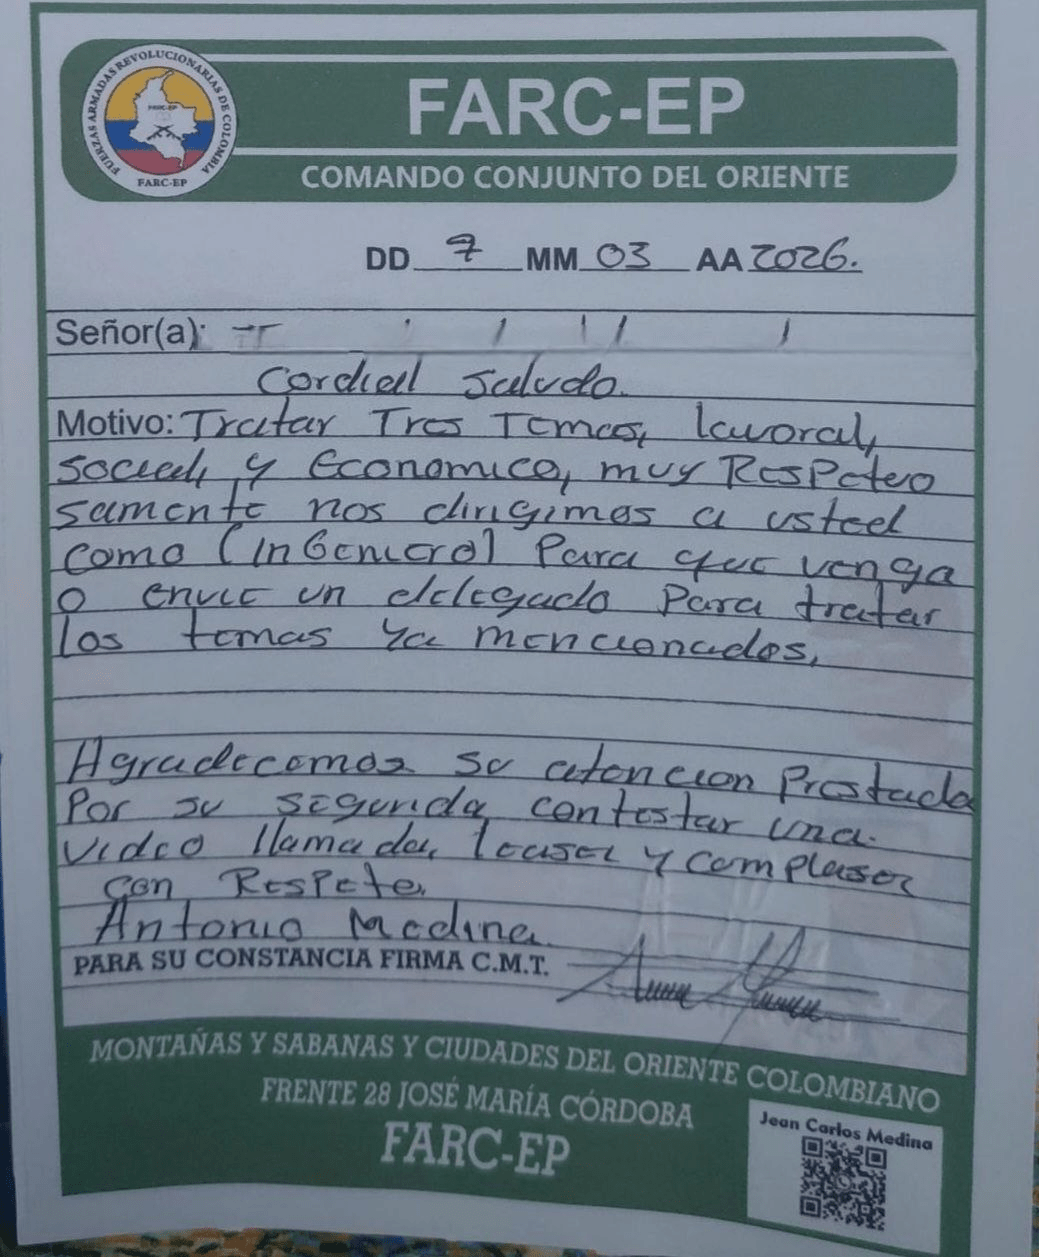 FUERZAS ARMADAS REVOLUCIONARIAS DE COLOMBIA
FARC-EP
FARC-EP
FARC-EP
COMANDO CONJUNTO DEL ORIENTE
DD 7 MM 03 AA 2026.
Señor(a):
Cordial saludo.
Motivo: Tratar Tres Temas, lavoral,
social, y Economico, muy Respetuo
samente nos dirigimos a usted
como (inGeniero) Para que venga
o envie un delegado Para tratar
los temas ya mencionados,
Agradecemos su atencion Prestada
Por su segunda contestar una.
video llamada, leasel y complasel
con Respeto.
Antonio Medina.
PARA SU CONSTANCIA FIRMA C.M.T.
MONTAÑAS Y SABANAS Y CIUDADES DEL ORIENTE COLOMBIANO
FRENTE 28 JOSÉ MARÍA CÓRDOBA
FARC-EP
Jean Carlos Medina